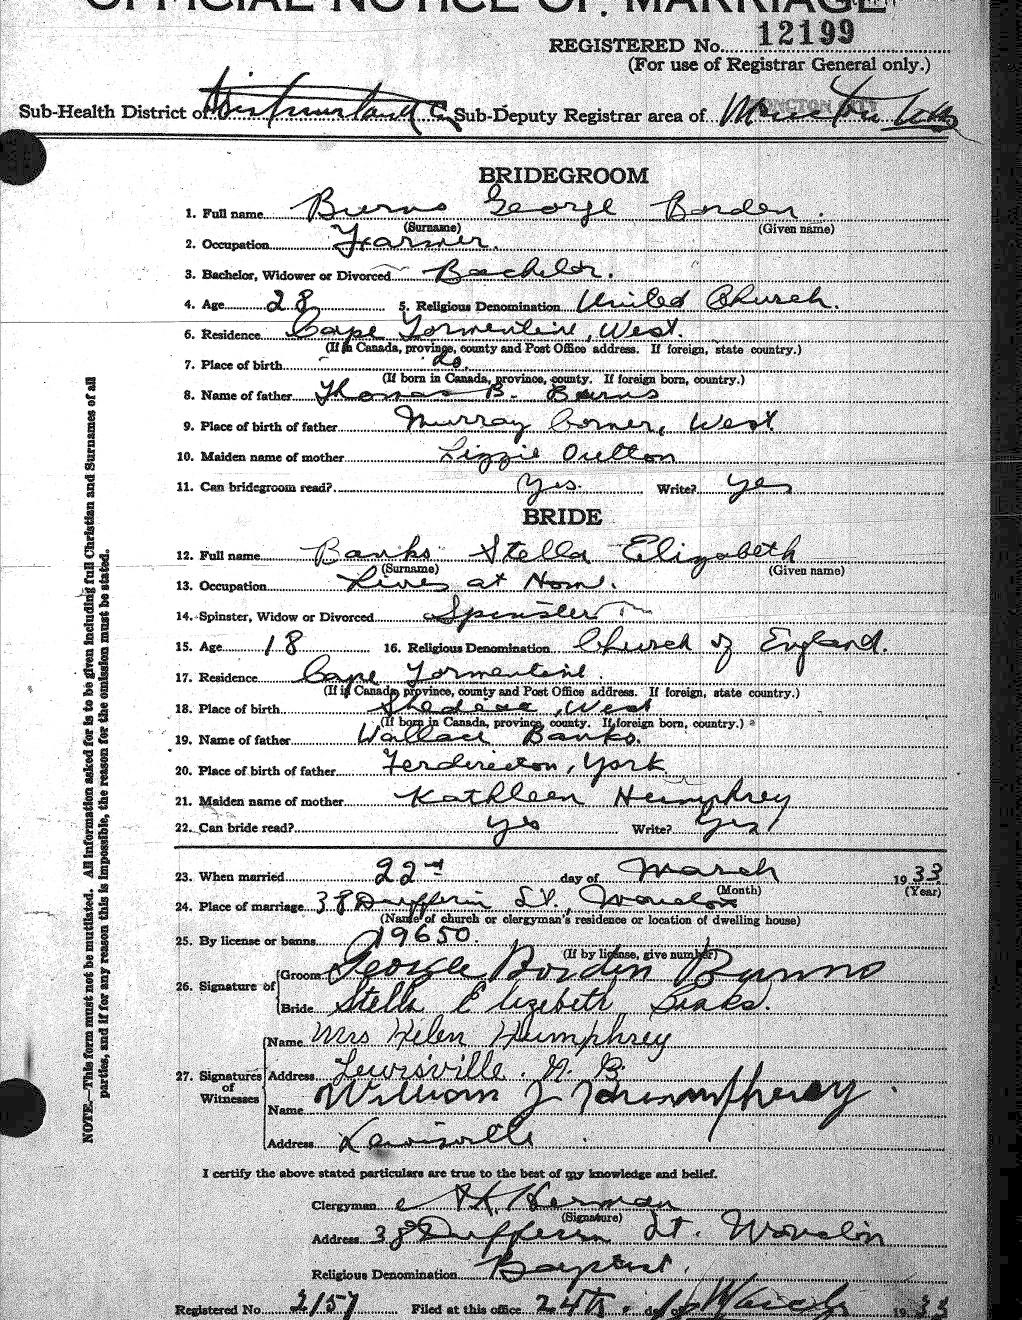 OFFICIAL NOTICE OF MARRIAGE
REGISTERED No. 12199
(For use of Registrar General only.)
Sub-Health District of Westmorland Co Sub-Deputy Registrar area of Moncton MONCTON CITY
BRIDEGROOM
1. Full name Burns George Borden.
(Surname) (Given name)
2. Occupation Farmer.
3. Bachelor, Widower or Divorced Bachelor.
4. Age 28 5. Religious Denomination United Church.
6. Residence Cape Tormentine, West.
(If in Canada, province, county and Post Office address. If foreign, state country.)
7. Place of birth do.
(If born in Canada, province, county. If foreign born, country.)
8. Name of father Thomas B. Burns
9. Place of birth of father Murray Corner, West.
10. Maiden name of mother Lizzie Oulton
11. Can bridegroom read? Yes. Write? yes
BRIDE
12. Full name Banks Stella Elizabeth
(Surname) (Given name)
13. Occupation Lives at Home.
14. Spinster, Widow or Divorced Spinster
15. Age 18 16. Religious Denomination Church of England.
17. Residence Cape Tormentine.
(If in Canada, province, county and Post Office address. If foreign, state country.)
18. Place of birth Shediac, West
(If born in Canada, province, county. If foreign born, country.)
19. Name of father Wallace Banks.
20. Place of birth of father Ferdericton, York
21. Maiden name of mother Kathleen Humphrey
22. Can bride read? yes Write? Yes
23. When married 22nd day of March 1933
(Month) (Year)
24. Place of marriage 38 Dufferin St., Moncton
(Name of church or clergyman's residence or location of dwelling house)
25. By license or banns 19650.
(If by license, give number)
26. Signature of
Groom George Borden Burns
Bride Stella Elizebeth Banks.
27. Signatures of Witnesses
Name Mrs Helen Humphrey
Address Lewisville. N. B.
Name William J Humphrey.
Address Lewisville
I certify the above stated particulars are true to the best of my knowledge and belief.
Clergyman Herman
(Signature)
Address 38 Dufferin St. Moncton
Religious Denomination Baptist.
Registered No. 2157 Filed at this office 24th day of March 1933
NOTE.—This form must not be mutilated. All information asked for is to be given including full Christian and Surnames of all
parties, and if for any reason this is impossible, the reason for the omission must be stated.